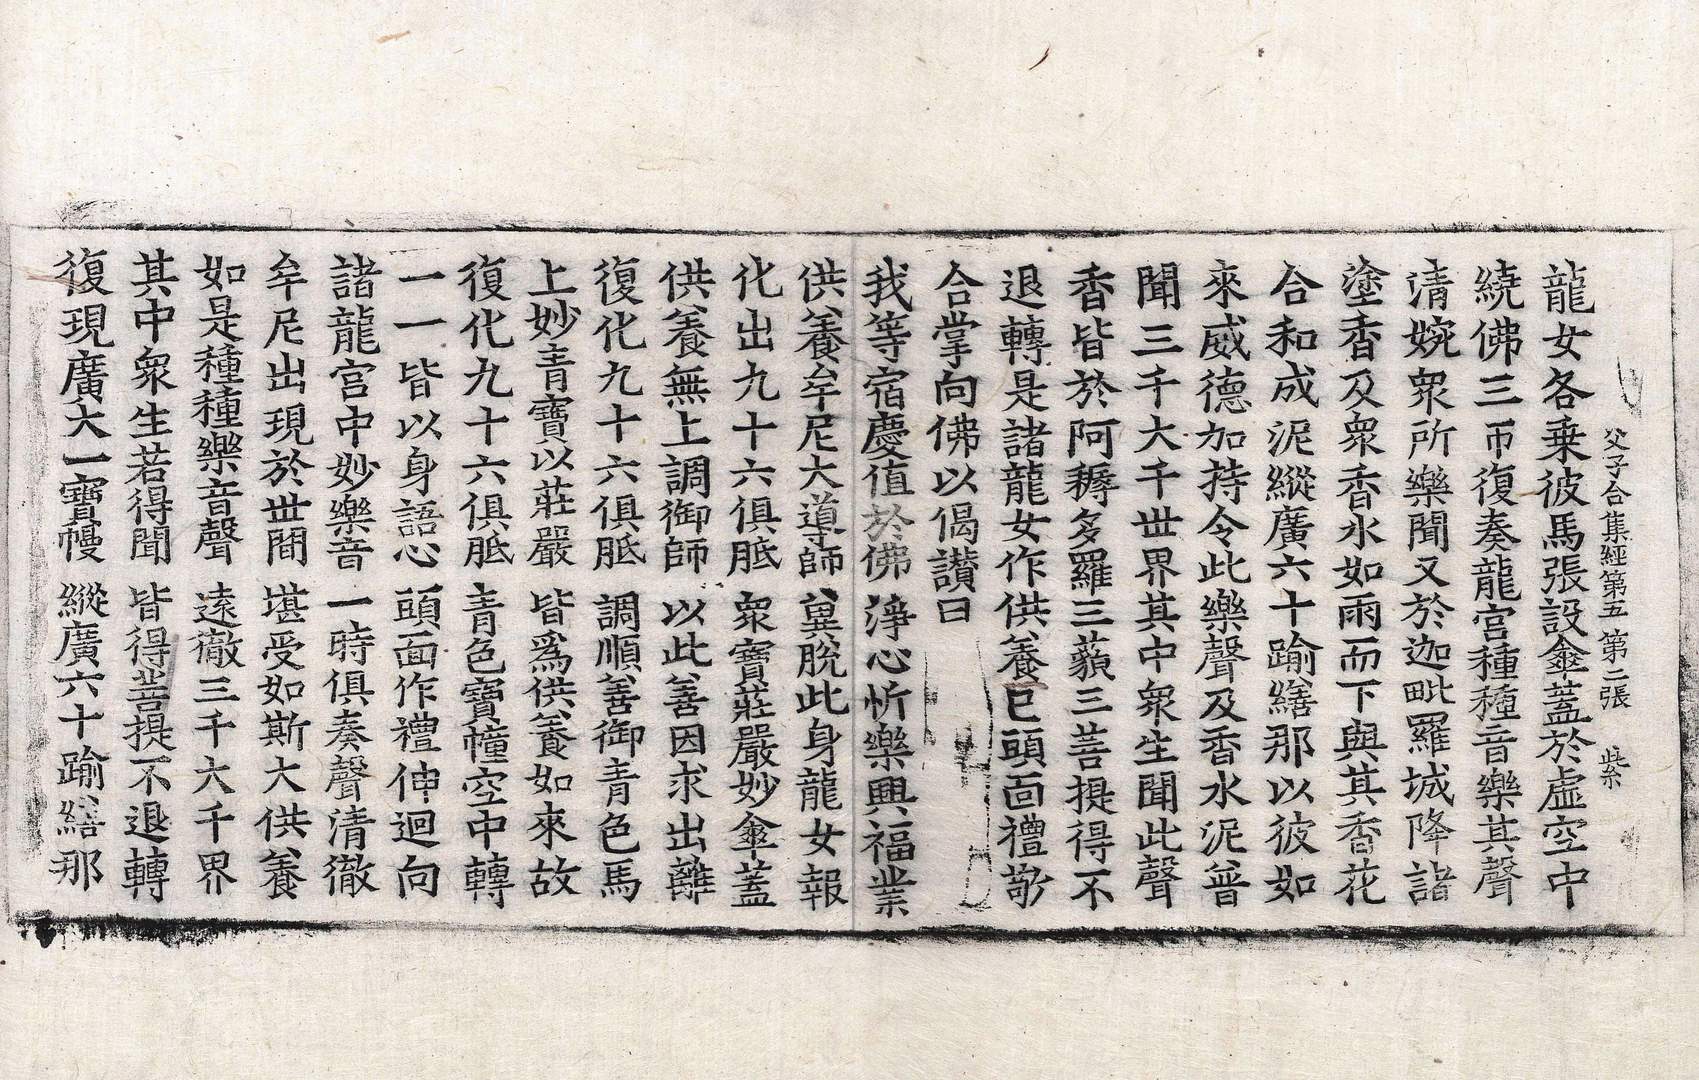 父子合集經第五 第二張 紫
龍女各乗彼馬張設傘蓋於虛空中
繞佛三帀復奏龍宮種種音樂其聲
清婉衆所樂聞又於迦毗羅城降諸
塗香及衆香水如雨而下與其香花
合和成泥縱廣六十踰繕那以彼如
來威德加持令此樂聲及香水泥普
聞三千大千世界其中衆生聞此聲
香皆於阿耨多羅三藐三菩提得不
退轉是諸龍女作供養已頭面禮敬
合掌向佛以偈讃曰
我等宿慶値於佛 淨心忻樂興福業
供養牟尼大導師 冀脫此身龍女報
化出九十六俱胝 衆寶莊嚴妙傘蓋
供養無上調御師 以此善因求出離
復化九十六俱胝 調順善御青色馬
上妙青寶以莊嚴 皆爲供養如來故
復化九十六俱胝 青色寶幢空中轉
一一皆以身語心 頭面作禮伸迴向
諸龍宮中妙樂音 一時俱奏聲清徹
牟尼出現於世間 堪受如斯大供養
如是種種樂音聲 遠徹三千大千界
其中衆生若得聞 皆得菩提不退轉
復現廣大一寶幔 縱廣六十踰繕那